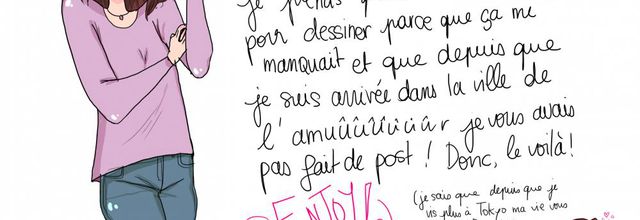 je prends
pour dessiner parce que ça me
manquait et que depuis que
je suis arrivée dans la ville de
l'amuûûûûùùûr je vous avais
pas fait de post ! Donc, le voilà !
ENJOY
(je sais que depuis que je
vis plus à Tokyo ma vie vous